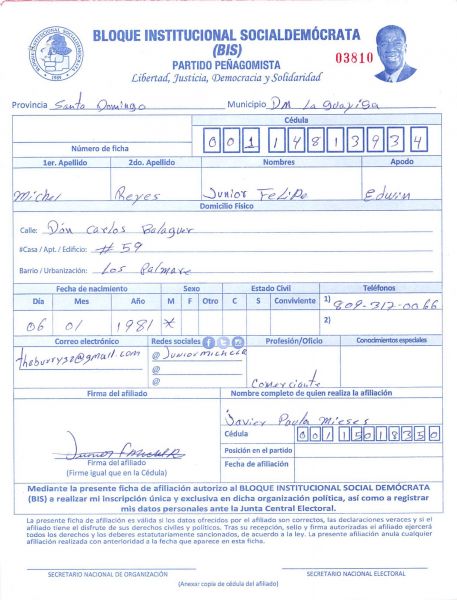 BLOQUE INSTITUCIONAL SOCIALDEMÓCRATA
(BIS)
PARTIDO PEÑAGOMISTA
Libertad, Justicia, Democracia y Solidaridad
03810
Provincia Santo Domingo Municipio DM La Guayiga
Cédula
Número de ficha 0 0 1 1 4 8 1 3 9 3 4
1er. Apellido 2do. Apellido Nombres Apodo
Michel Reyes Junior Felipe Edwin
Domicilio Físico
Calle: Dón Carlos Balaguer
#Casa / Apt. / Edificio: # 59
Barrio / Urbanización: Los Palmare
Fecha de nacimiento Sexo Estado Civil Teléfonos
Día Mes Año M F Otro C S Conviviente 1) 809-312-0066
06 01 1981 x 2)
Correo electrónico Redes sociales Profesión/Oficio Conocimientos especiales
@gmail.com @
@
@
Comerciante
Firma del afiliado Nombre completo de quien realiza la afiliación
Javier Paula Mieses
Cédula 0 0 1 1 5 0 1 8 3 5 0
Firma del afiliado Posición en el partido
(Firme igual que en la Cédula) Fecha de afiliación
Mediante la presente ficha de afiliación autorizo al BLOQUE INSTITUCIONAL SOCIAL DEMÓCRATA
(BIS) a realizar mi inscripción única y exclusiva en dicha organización política, así como a registrar
mis datos personales ante la Junta Central Electoral.
La presente ficha de afiliación es válida si los datos ofrecidos por el afiliado son correctos, las declaraciones veraces y si el
afiliado tiene el disfrute de sus derechos civiles y políticos. Tras su recepción, sello y firma autorizadas el afiliado ejercerá
todos los derechos y los deberes estatutariamente sancionados, de acuerdo a la ley. La presente afiliación anula cualquier
afiliación realizada con anterioridad a la fecha que aparece en esta ficha.
SECRETARIO NACIONAL DE ORGANIZACIÓN SECRETARIO NACIONAL ELECTORAL
(Anexar copia de cédula del afiliado)